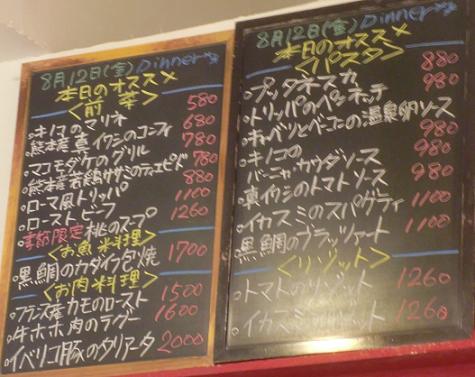 8月12日(金) Dinner
本日のオススメ
<前菜>
・キノコのマリネ 580
・熊本産真イワシのコンフィ 680
・マコモダケのグリル 780
・熊本産若鶏ササミのティエピド 780
・ローマ風トリッパ 880
・ローストビーフ 1100
・季節限定桃のスープ 1260
<お魚料理>
・黒鯛のカダイフ包焼 1700
<お肉料理>
・フランス産カモのロースト 1500
・牛ホホ肉のラグー 1600
・イベリコ豚のタリアータ 2000
8月12日(金) Dinner
本日のオススメ
<パスタ>
・プッタネスカ 880
・トリッパのペンネッテ 980
・キャベツとベーコンの温泉卵ソース
980
・キノコの
バーニャカウダソース 980
・真イワシのトマトソース 980
・イカスミのスパゲティ 1100
・黒鯛のブラッツァート 1100
<リゾット>
・トマトのリゾット 1260
・イカスミのリゾット 1260